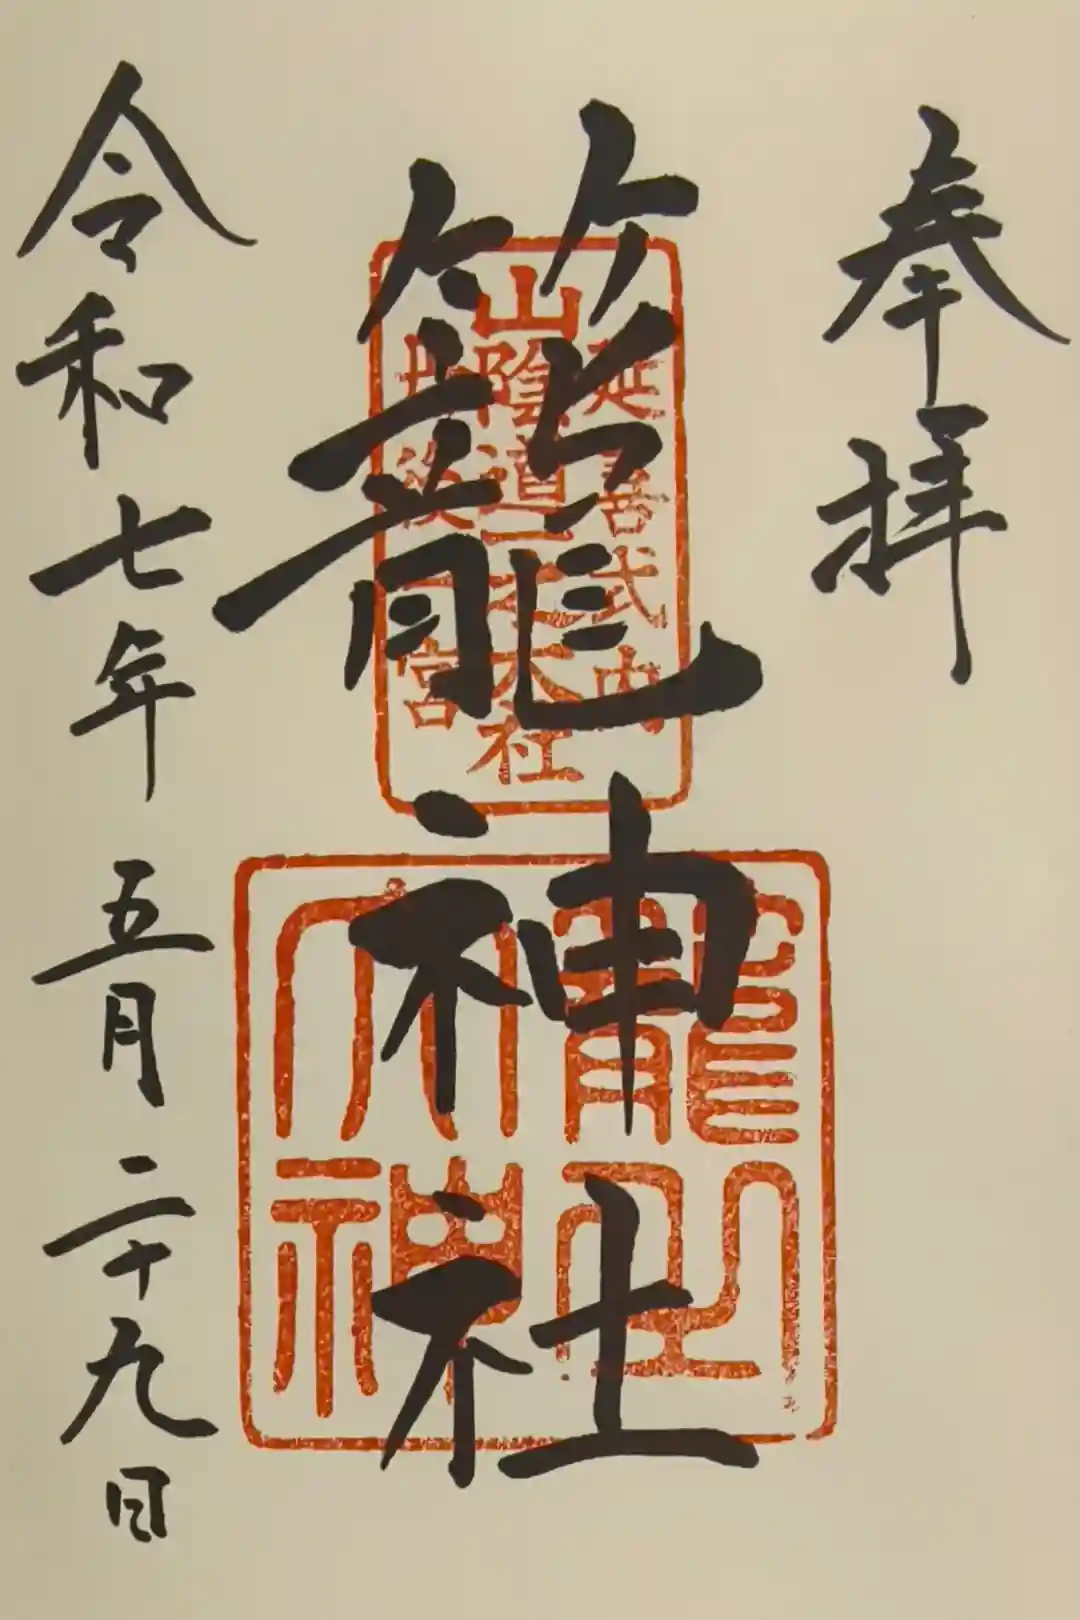 奉拝
延喜式内
山陰道一之大社
丹後一宮
籠神社
籠之大神
令和七年五月二十九日